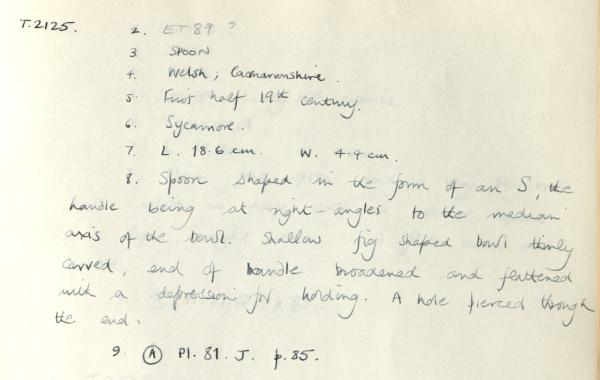 T.2125. 2. ET 89 ?
3. SPOON
4. Welsh; Caernarvonshire.
5. First half 19th century.
6. Sycamore.
7. L. 18.6 cm. W. 4.4 cm.
8. Spoon shaped in the form of an S, the
handle being at right-angles to the median
axis of the bowl. Shallow fig shaped bowl thinly
carved, end of handle broadened and flattened
with a depression for holding. A hole pierced through
the end.
9. A Pl. 81. J. p. 85.